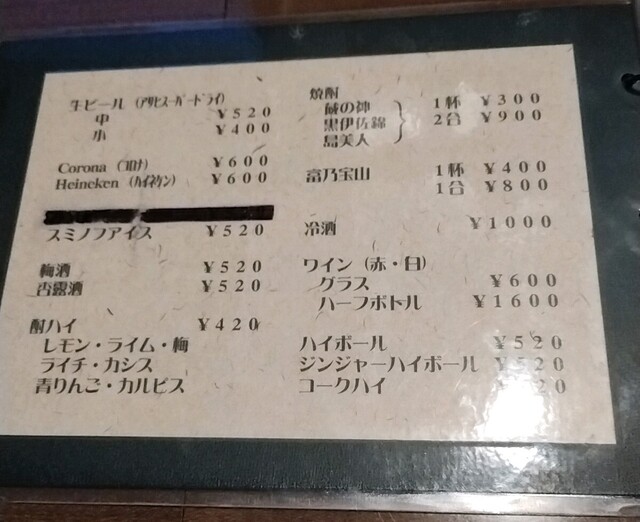 生ビール（アサヒスーパードライ）
中 ¥520
小 ¥400
Corona（コロナ） ¥600
Heineken（ハイネケン） ¥600
スミノフアイス ¥520
梅酒 ¥520
杏露酒 ¥520
酎ハイ ¥420
レモン・ライム・梅
ライチ・カシス
青りんご・カルピス
焼酎
蔵の神 1杯 ¥300
黒伊佐錦 2合 ¥900
島美人
富乃宝山 1杯 ¥400
1合 ¥800
冷酒 ¥1000
ワイン（赤・白）
グラス ¥600
ハーフボトル ¥1600
ハイボール ¥520
ジンジャーハイボール ¥520
コークハイ 20